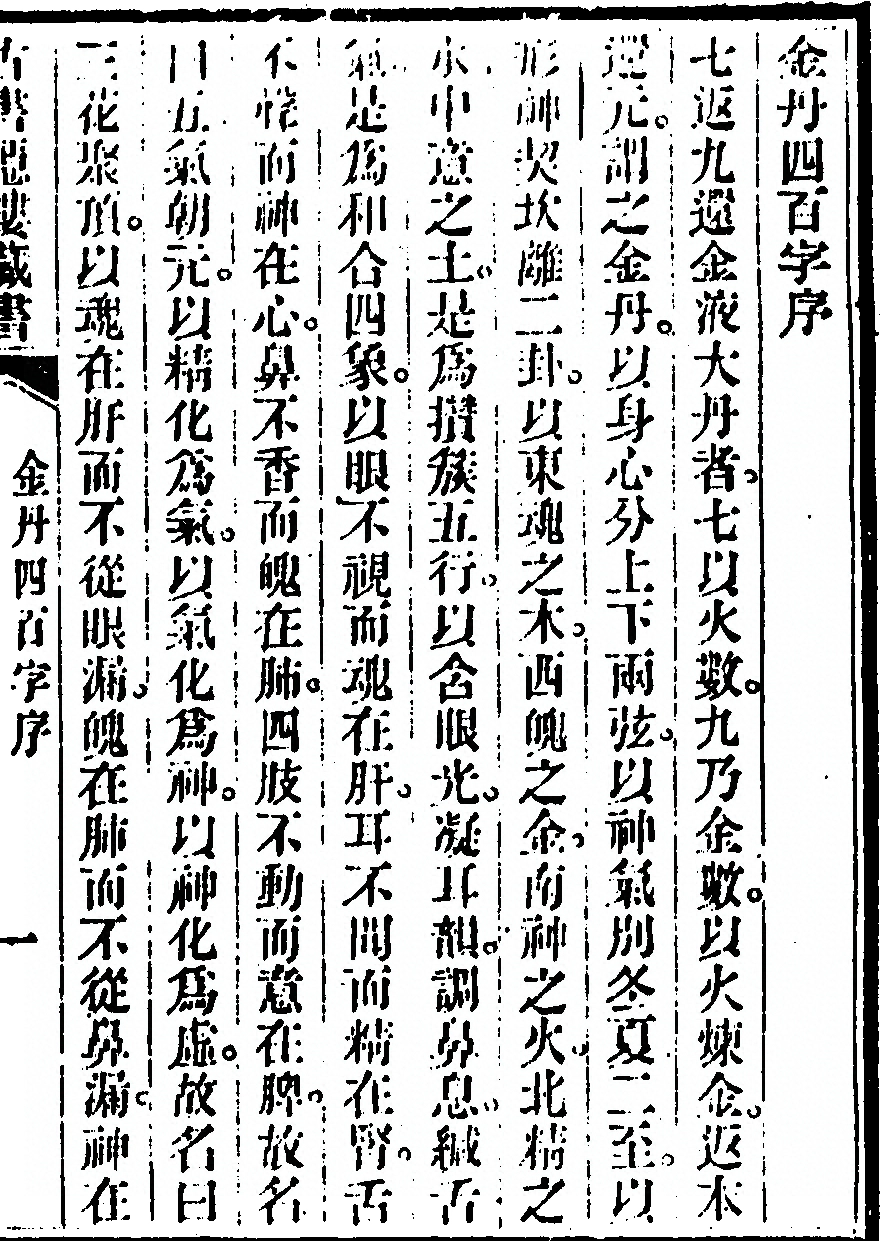 金丹四百字序
七返九還金液大丹者。七以火數。九乃金數。以火煉金。返本
還元。謂之金丹。以身心分上下兩弦。以神氣別冬夏二至。以
形神契坎離二卦。以東魂之木。西魄之金。南神之火。北精之
水中意之土。是爲攢簇五行。以含眼光。凝耳韻。調鼻息。緘舌
氣。是爲和合四象。以眼不視而魂在肝。耳不聞而精在腎。舌
不聲而神在心。鼻不香而魄在肺。四肢不動而意在脾。故名
曰五氣朝元。以精化爲氣。以氣化爲神。以神化爲虛。故名曰
三花聚頂。以魂在肝而不從眼漏。魄在肺而不從鼻漏。神在
藏書
金丹四百字序
一